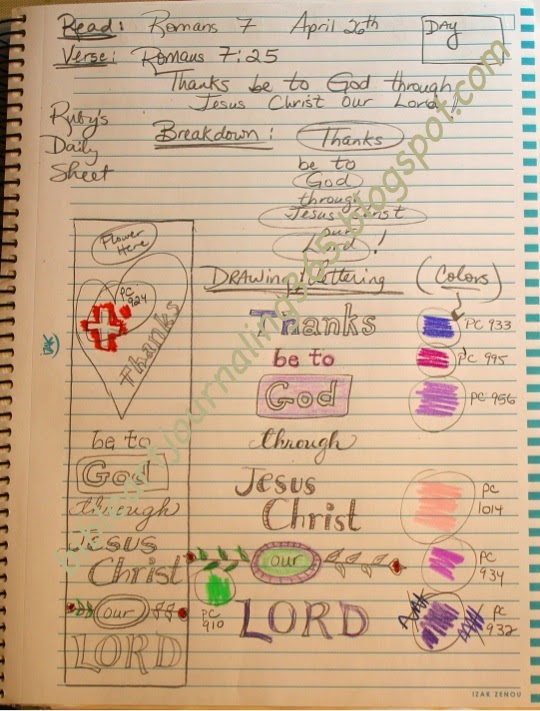 Read: Romans 7 April 26th
DAY
Verse: Romans 7:25
Thanks be to God through
Jesus Christ our Lord!
Ruby's
Daily
Sheet
Breakdown: Thanks
be to
God
through
Jesus Christ
our
Lord!
Flower
Here
PC
924
Thanks
be to
God
through
Jesus
Christ
our
LORD
DRAwing & Lettering (Colors)
Thanks PC 933
be to PC 995
God PC 956
through
Jesus
Christ
PC
1014
our
PC
934
PC
910
LORD
PC
932
IZAK ZENOU